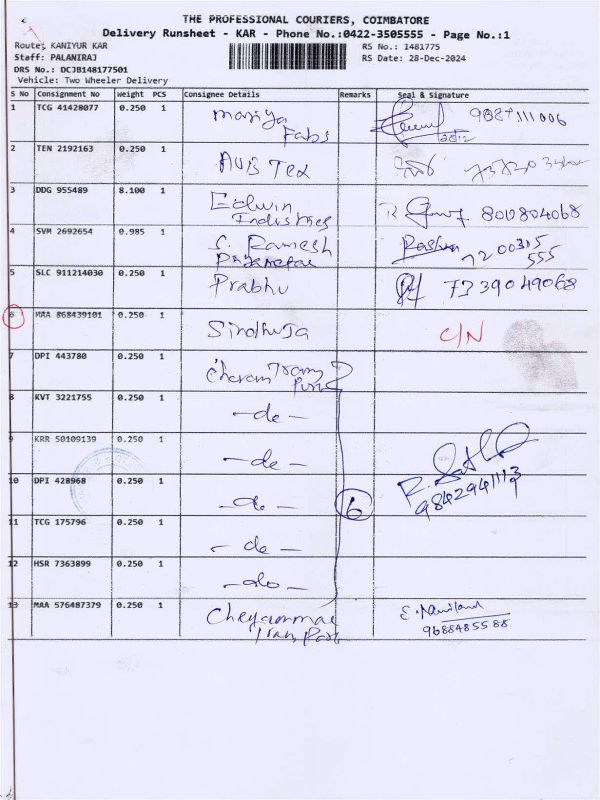 THE PROFESSIONAL COURIERS, COIMBATORE
Delivery Runsheet - KAR - Phone No.:0422-3505555 - Page No.:1
Route: KANIYUR KAR
RS No.: 1481775
Staff: PALANIRAJ
RS Date: 28-Dec-2024
DRS No.: DCJB148177501
Vehicle: Two Wheeler Delivery
S No Consignment No Weight PCS Consignee Details Remarks Seal & Signature
1 TCG 41428077 0.250 1 Mariya Fabs
2 TEN 2192163 0.250 1 AVB Tex
3 DDG 955489 8.100 1 Edwin Industries R 8012804068
4 SVM 2692654 0.985 1 S. Ramesh 7200315 555
5 SLC 911214030 0.250 1 Prabhu 7339049068
6 MAA 868439101 0.250 1 Sindhuja C/N
7 DPI 443780 0.250 1
8 KVT 3221755 0.250 1 - do -
9 KRR 50109139 0.250 1 - do -
10 DPI 428968 0.250 1 - do - 6 9842941113
11 TCG 175796 0.250 1 - do -
12 HSR 7363899 0.250 1 - do -
13 MAA 576487379 0.250 1 9688485588